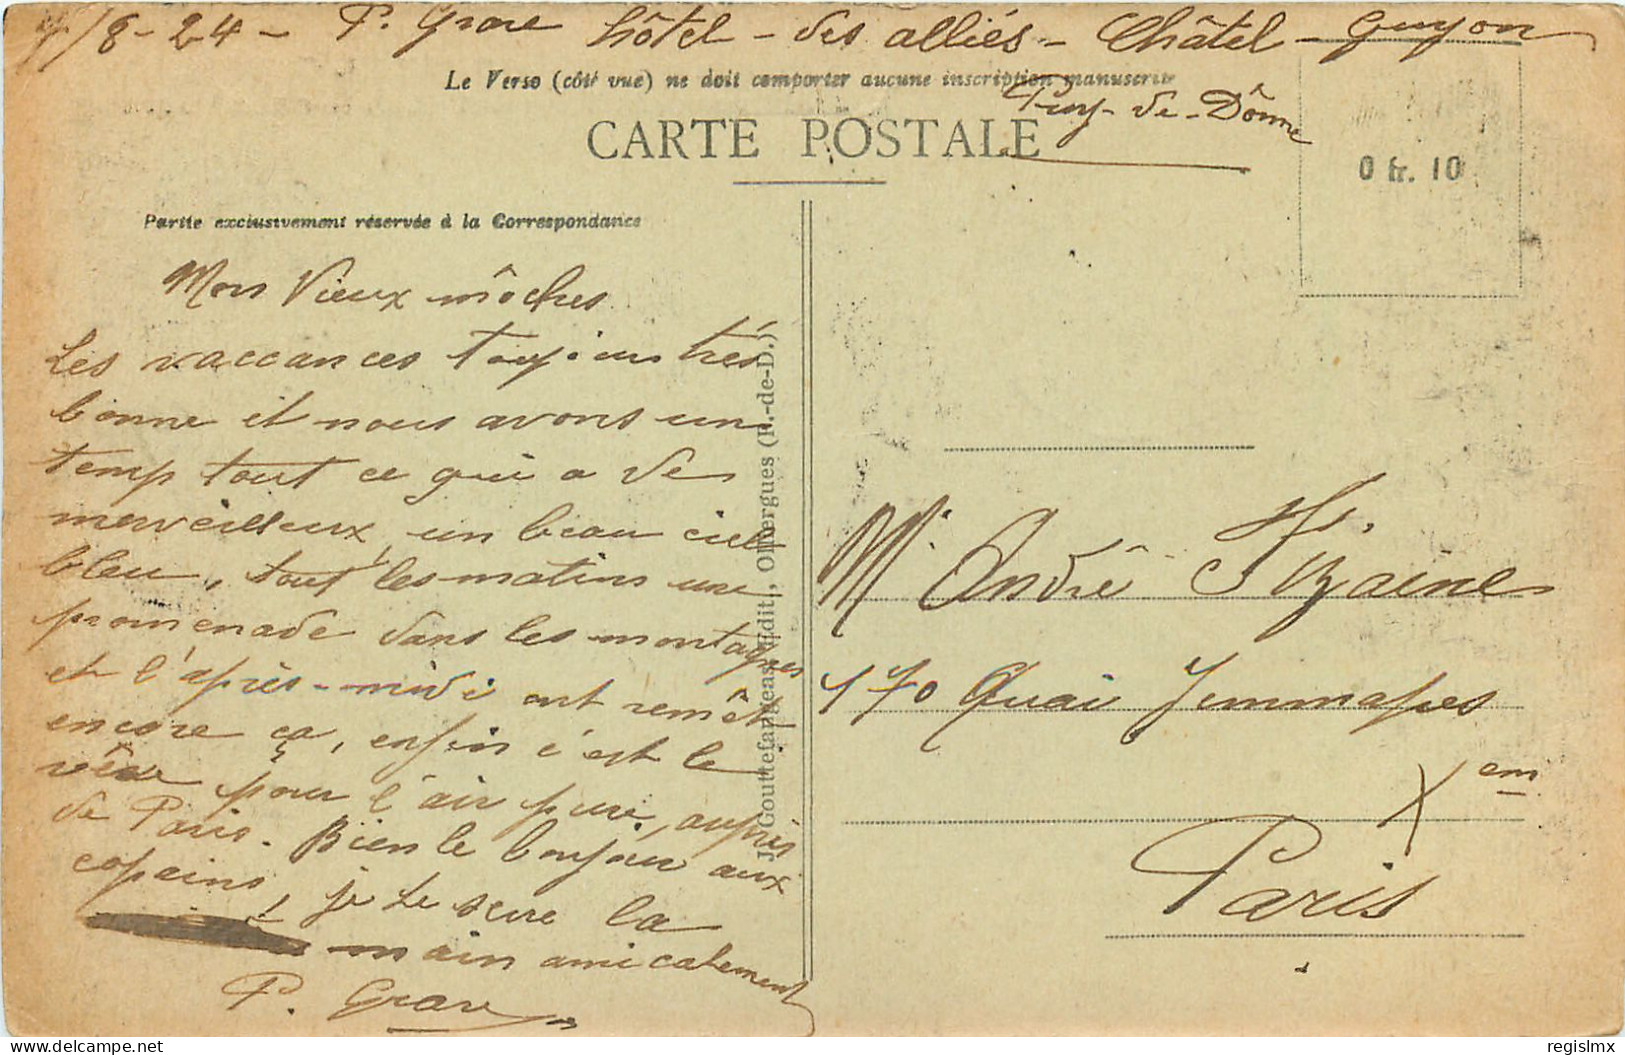 4/8-24- P. Grave hôtel - des alliés - Châtel - Guyon
Puy-de-Dôme
Le Verso (côté vue) ne doit comporter aucune inscription manuscrite
CARTE POSTALE
0 fr. 10
Partie exclusivement réservée à la Correspondance
Mon Vieux môches
Les vaccances toujours très
bonne et nous avons un
temp tout ce qui a de
merveilleux, un beau ciel
bleu, tout les matins une
promenade dans les montagnes
et l'après-midi ont remêt
encore ça, enfin c'est le
rêve pour l'air pure, auprès
de Paris. Bien le bonjour aux
copains, je te serre la
main amicalement
P. Grave
J. Gouttefangeas, Edit., Olliergues (P.-de-D.)
Mr. André
170 Quai Jemmapes
Xem
Paris
delcampe.net
regislmx